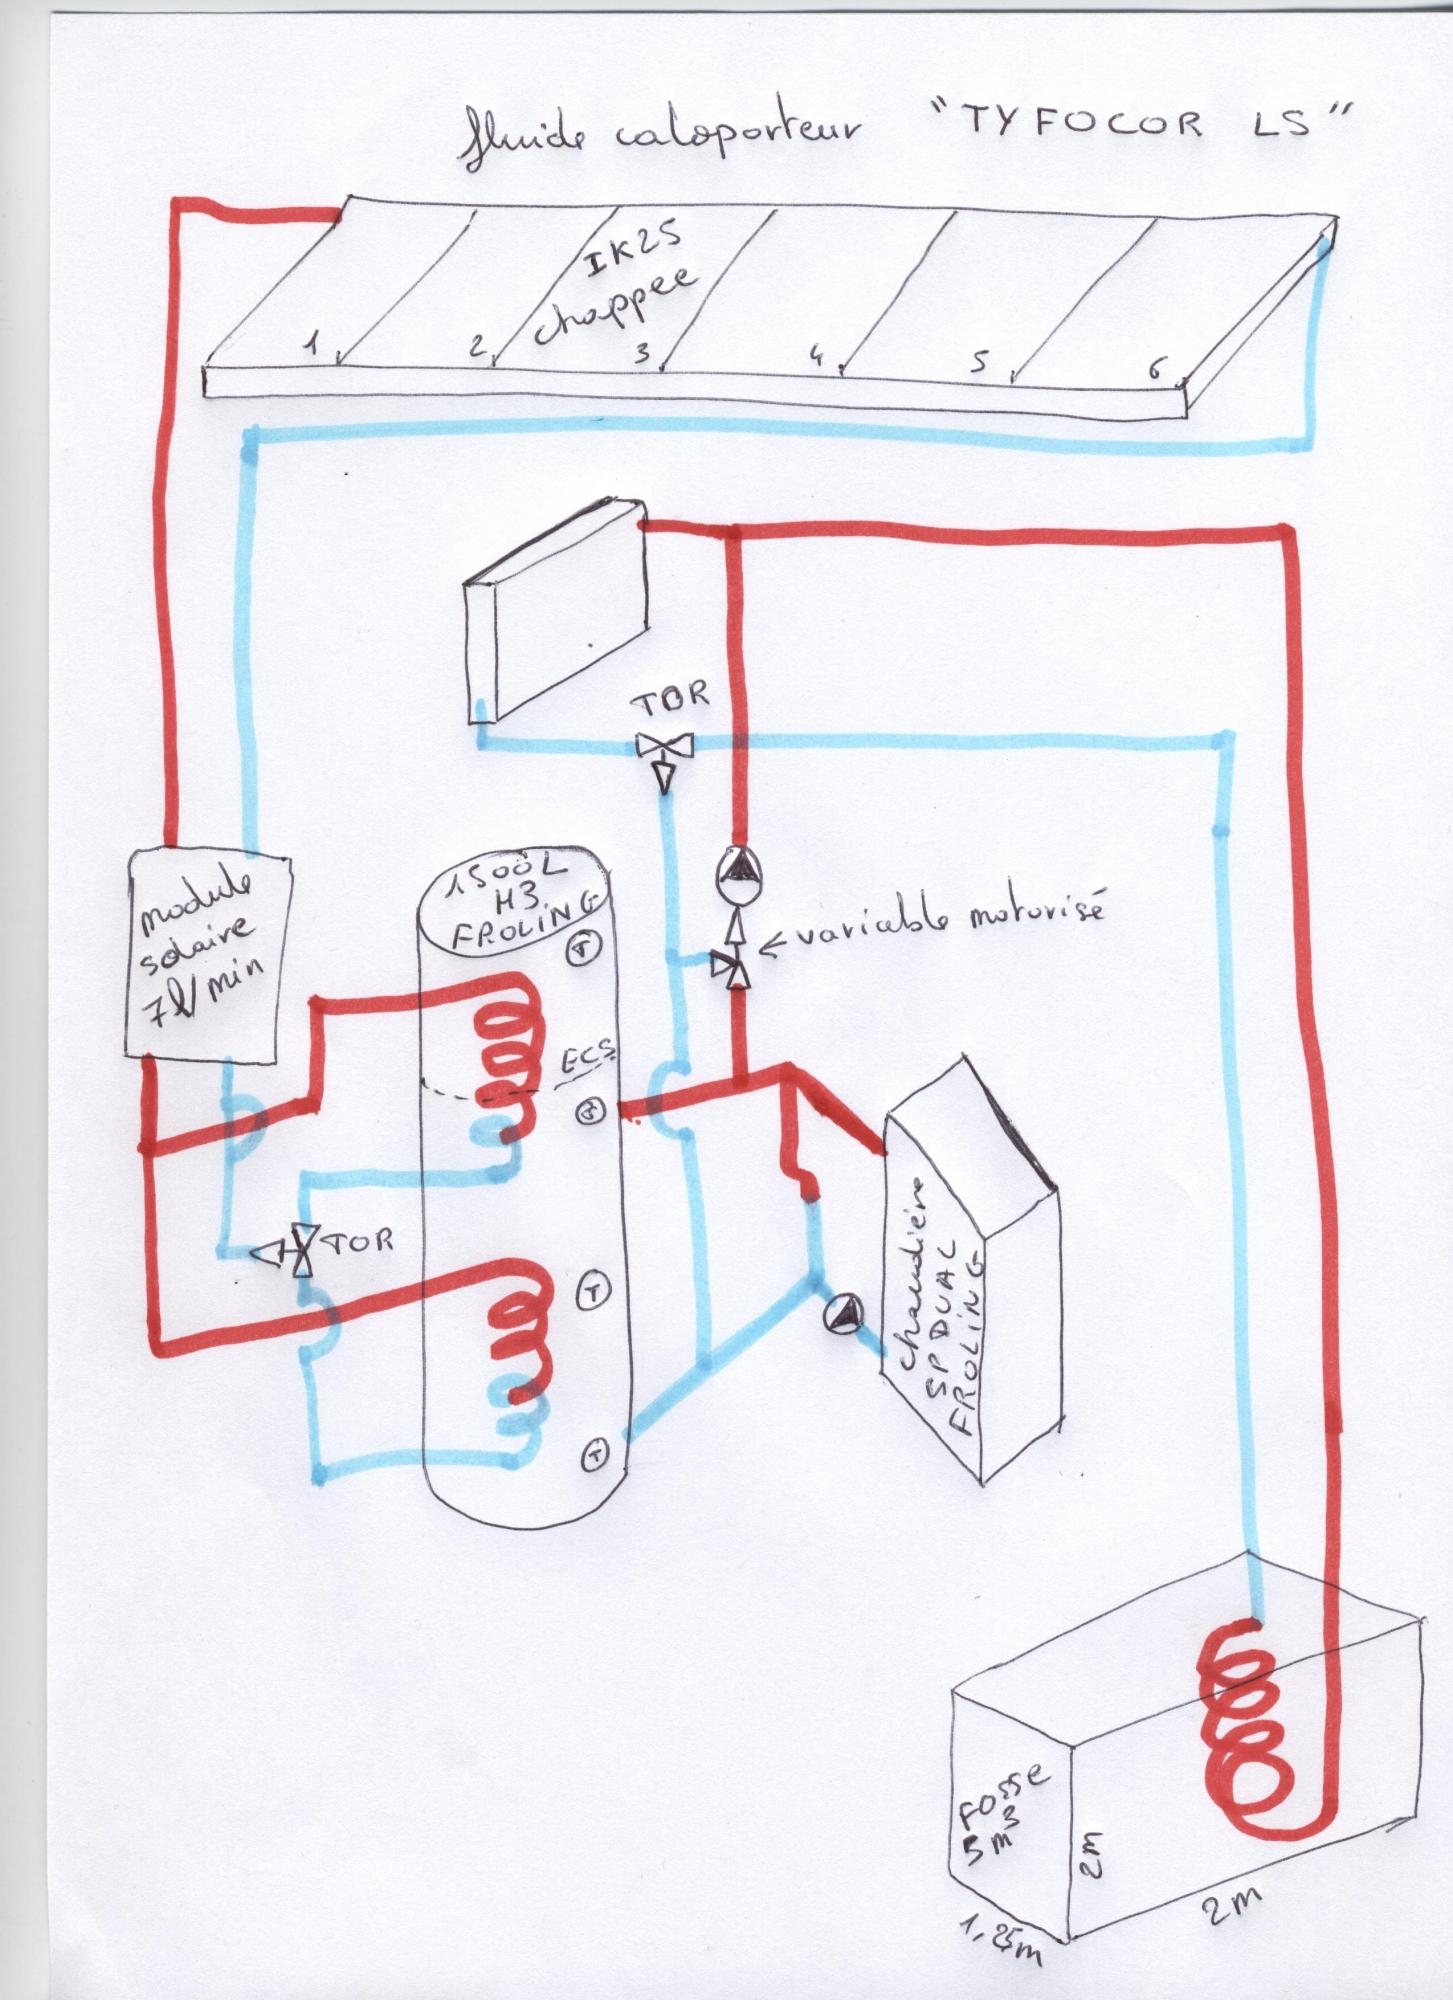 fluide caloporteur "TYFOCOR LS"
IK25
chappee
1 2 3 4 5 6
TOR
module
solaire
7l/min
1500L
H3
FROLING
T
← variable motorisé
ECS
T
TOR
T
chaudière
SP DUAL
FROLING
T
FOSSE
5m³
2m
1,25m
2m